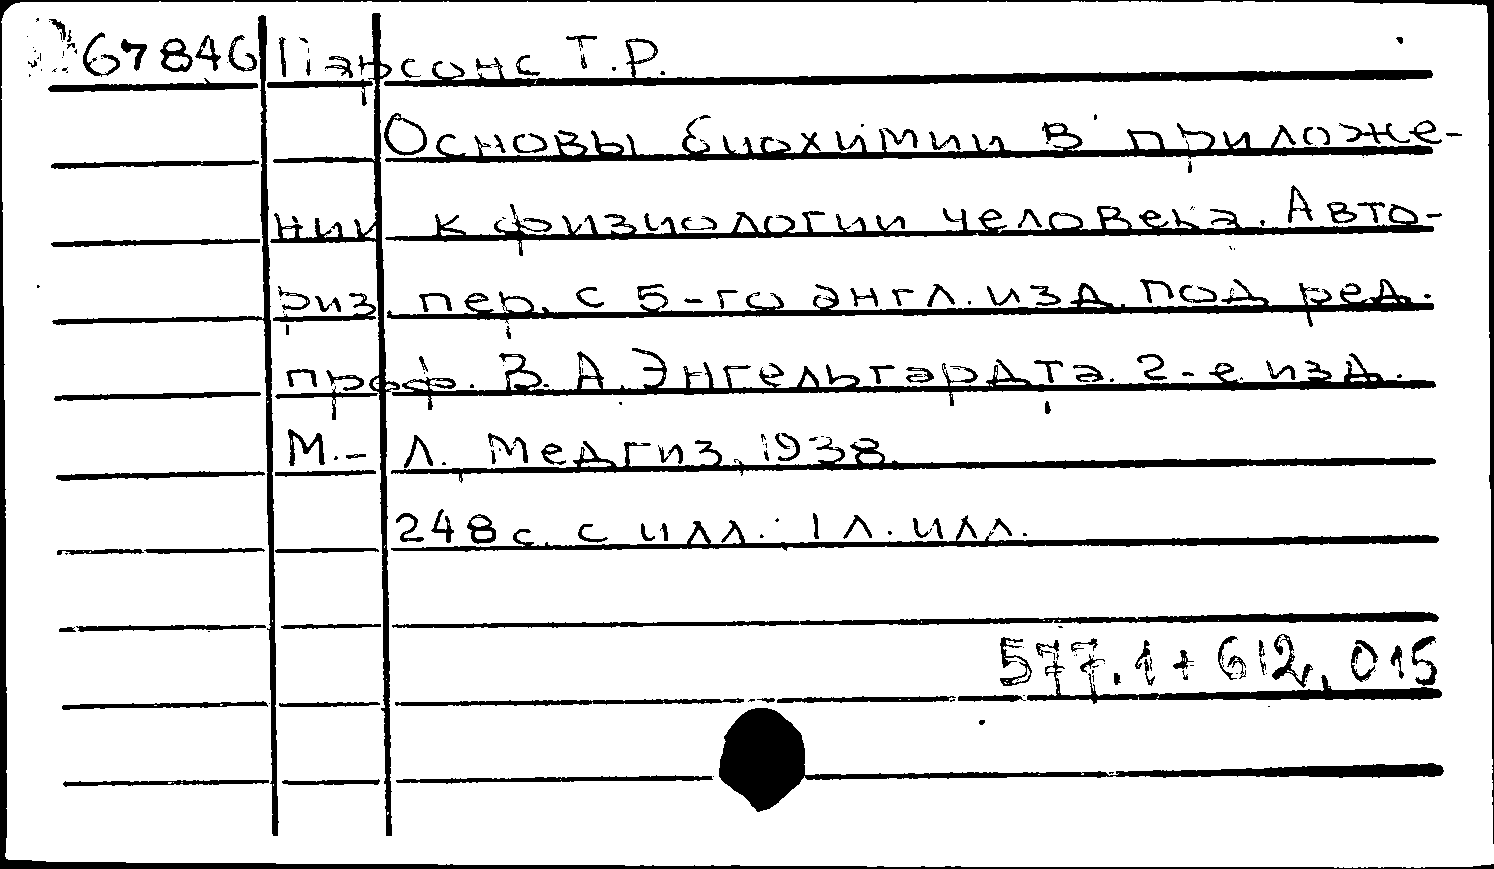 67846 Парсонс Т.Р.
Основы биохимии в приложе-
нии к физиологии человека. Авто-
риз. пер. с 5-го англ. изд. под ред.
проф. В.А. Энгельгардта. 2-е изд.
М.-Л. Медгиз, 1938.
248 с. с илл.; 1 л. илл.
577.1+612.015